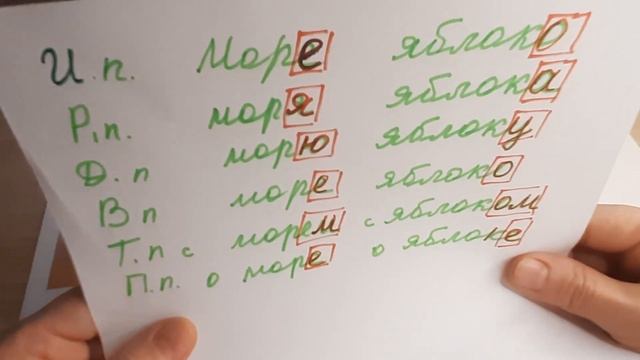 И.п. Море яблоко
Р.п. моря яблока
Д.п морю яблоку
В п море яблоко
Т.п с морем с яблоком
П.п. о море о яблоке